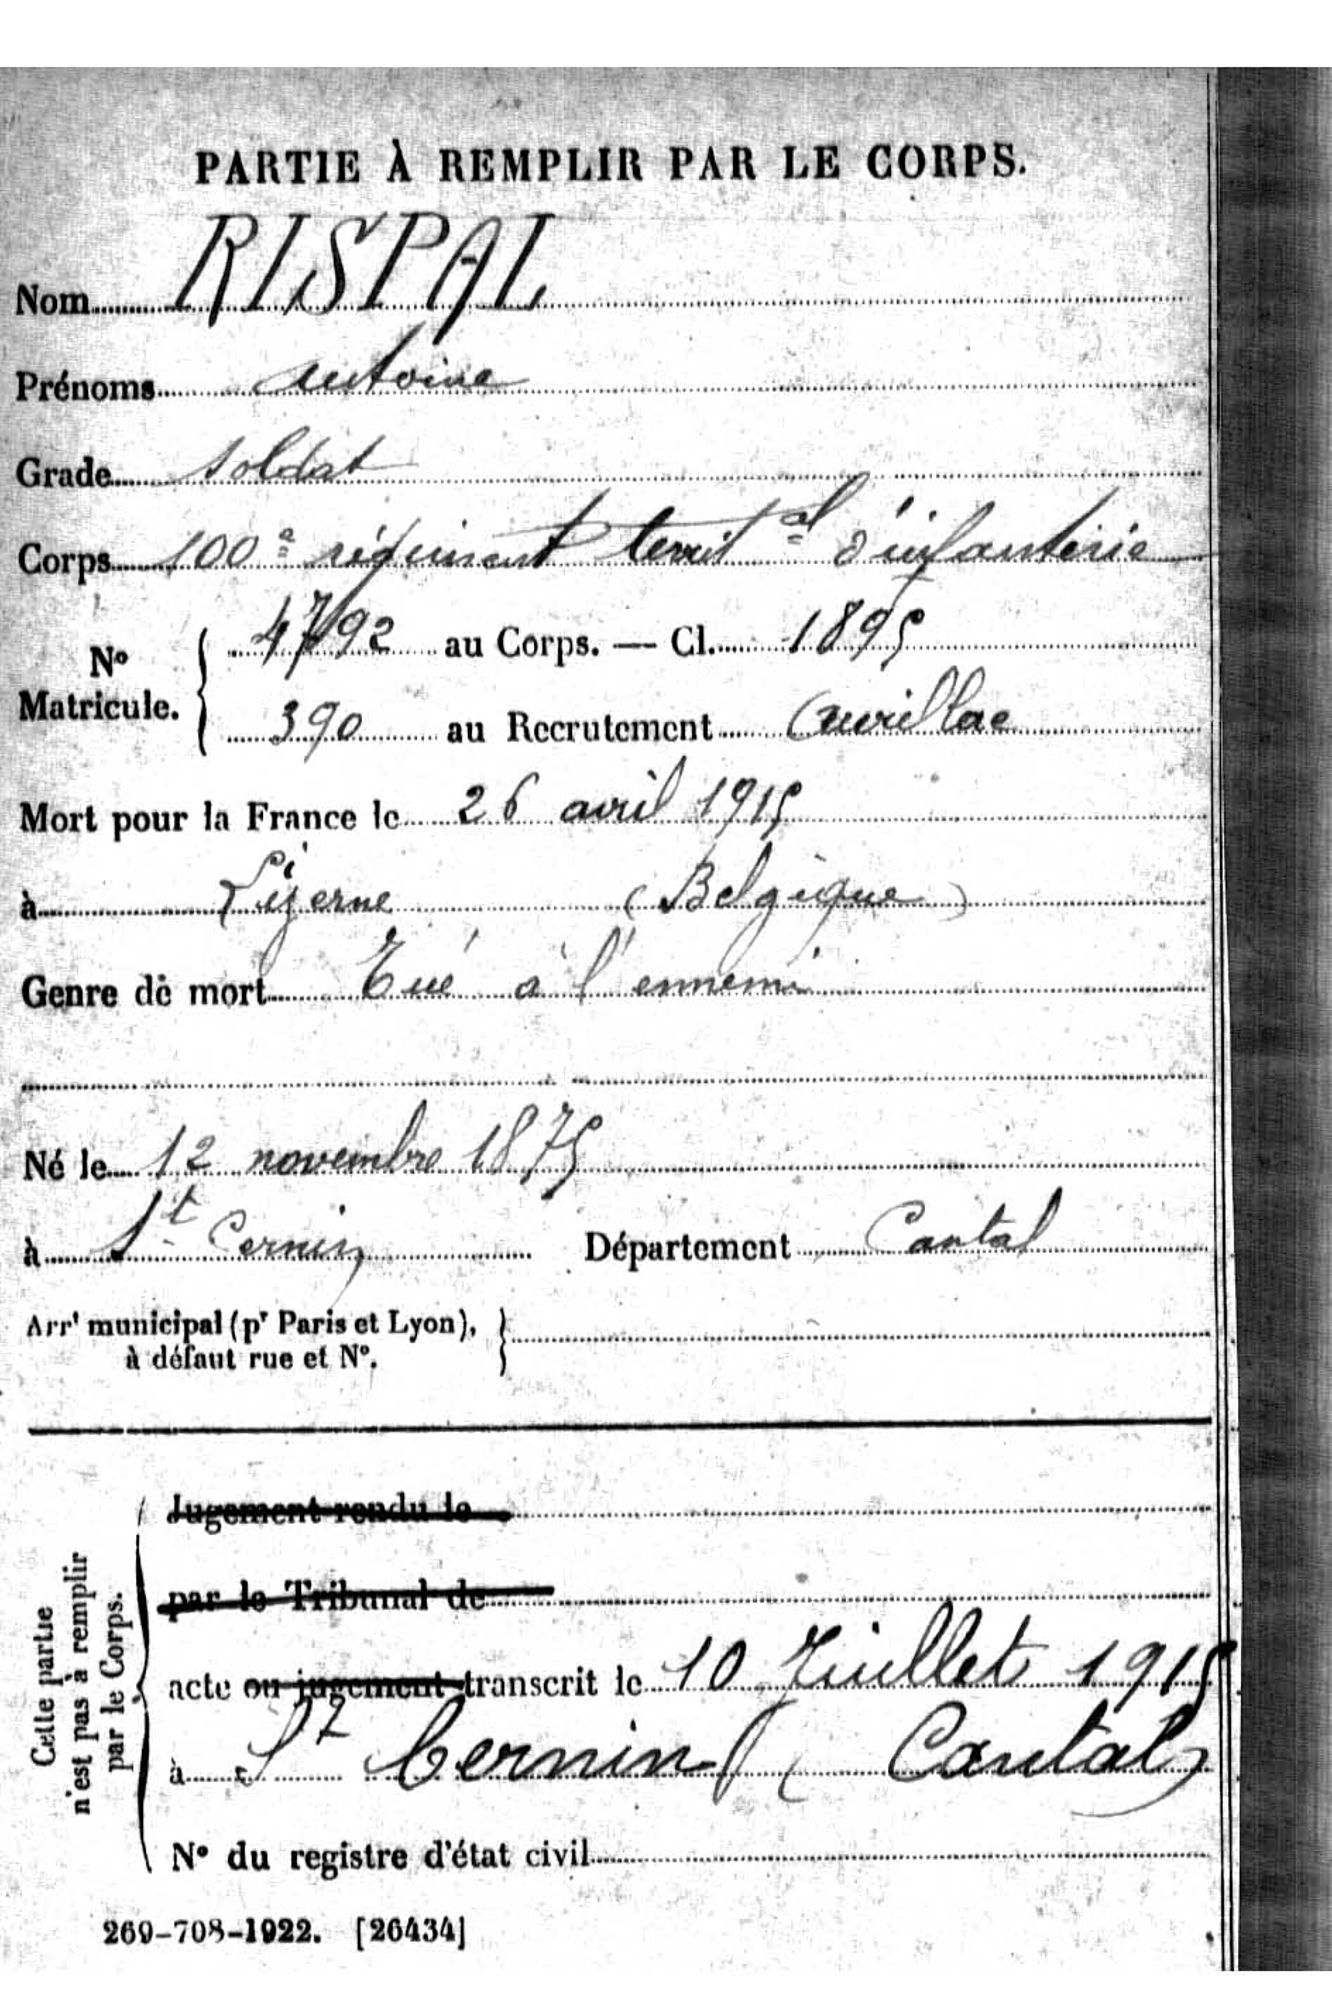 PARTIE À REMPLIR PAR LE CORPS.
Nom RISPAL
Prénoms Antoine
Grade soldat
Corps 100e régiment territal d'infanterie
N° Matricule. { 4792 au Corps. — Cl. 1895
390 au Recrutement Aurillac
Mort pour la France le 26 avril 1915
à Lizerne (Belgique)
Genre de mort Tué à l'ennemi
Né le 12 novembre 1875
à St Cernin Département Cantal
Arrt municipal (pr Paris et Lyon),
à défaut rue et N°.
Cette partie
n'est pas à remplir
par le Corps.
Jugement rendu le
par le Tribunal de
acte ou jugement transcrit le 10 Juillet 1915
à St Cernin (Cantal)
N° du registre d'état civil
269-708-1922. [26434]